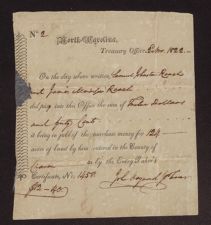 No 2
North-Carolina,
Treasury Office, 2 Nov. 1822
On the day above written, Samuel Johnston Roach
and James Roach
did pay into this Office the sum of Twelve Dollars
and forty Cents
it being in full of the purchase money for 124
acres of land by him entered in the County of
Craven as by the Entry Taker's
Certificate, No. 1458
$12-40 Jno Haywood P Treas